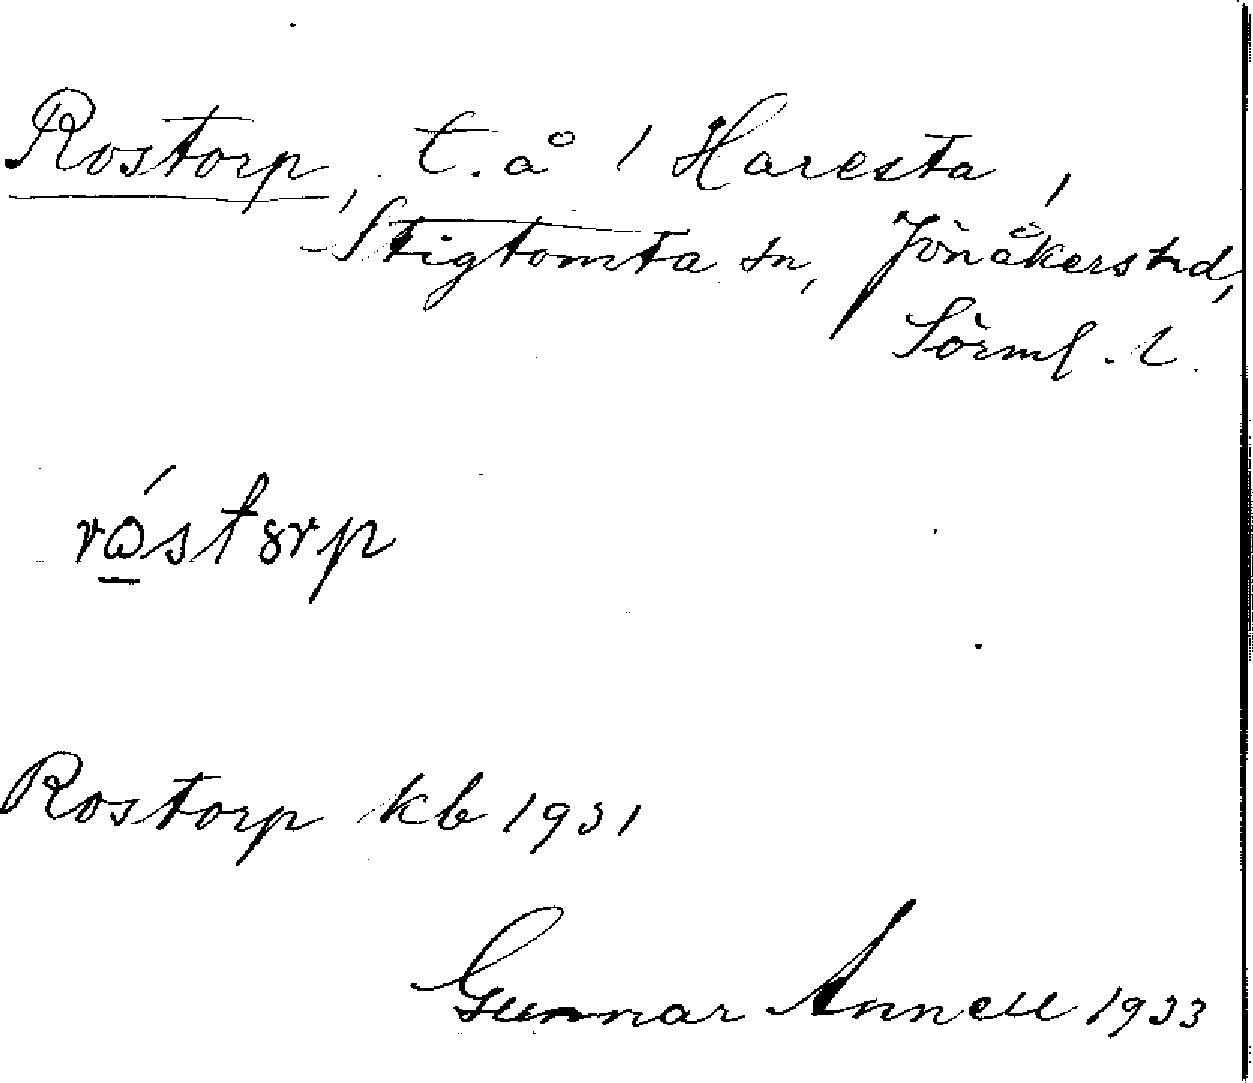 Rostorp, t. å / Haresta,
Stigtomta sn, Jönåkers hd,
Sörml. l.
róstorp
Rostorp kb 1931
Gunnar Annell 1933